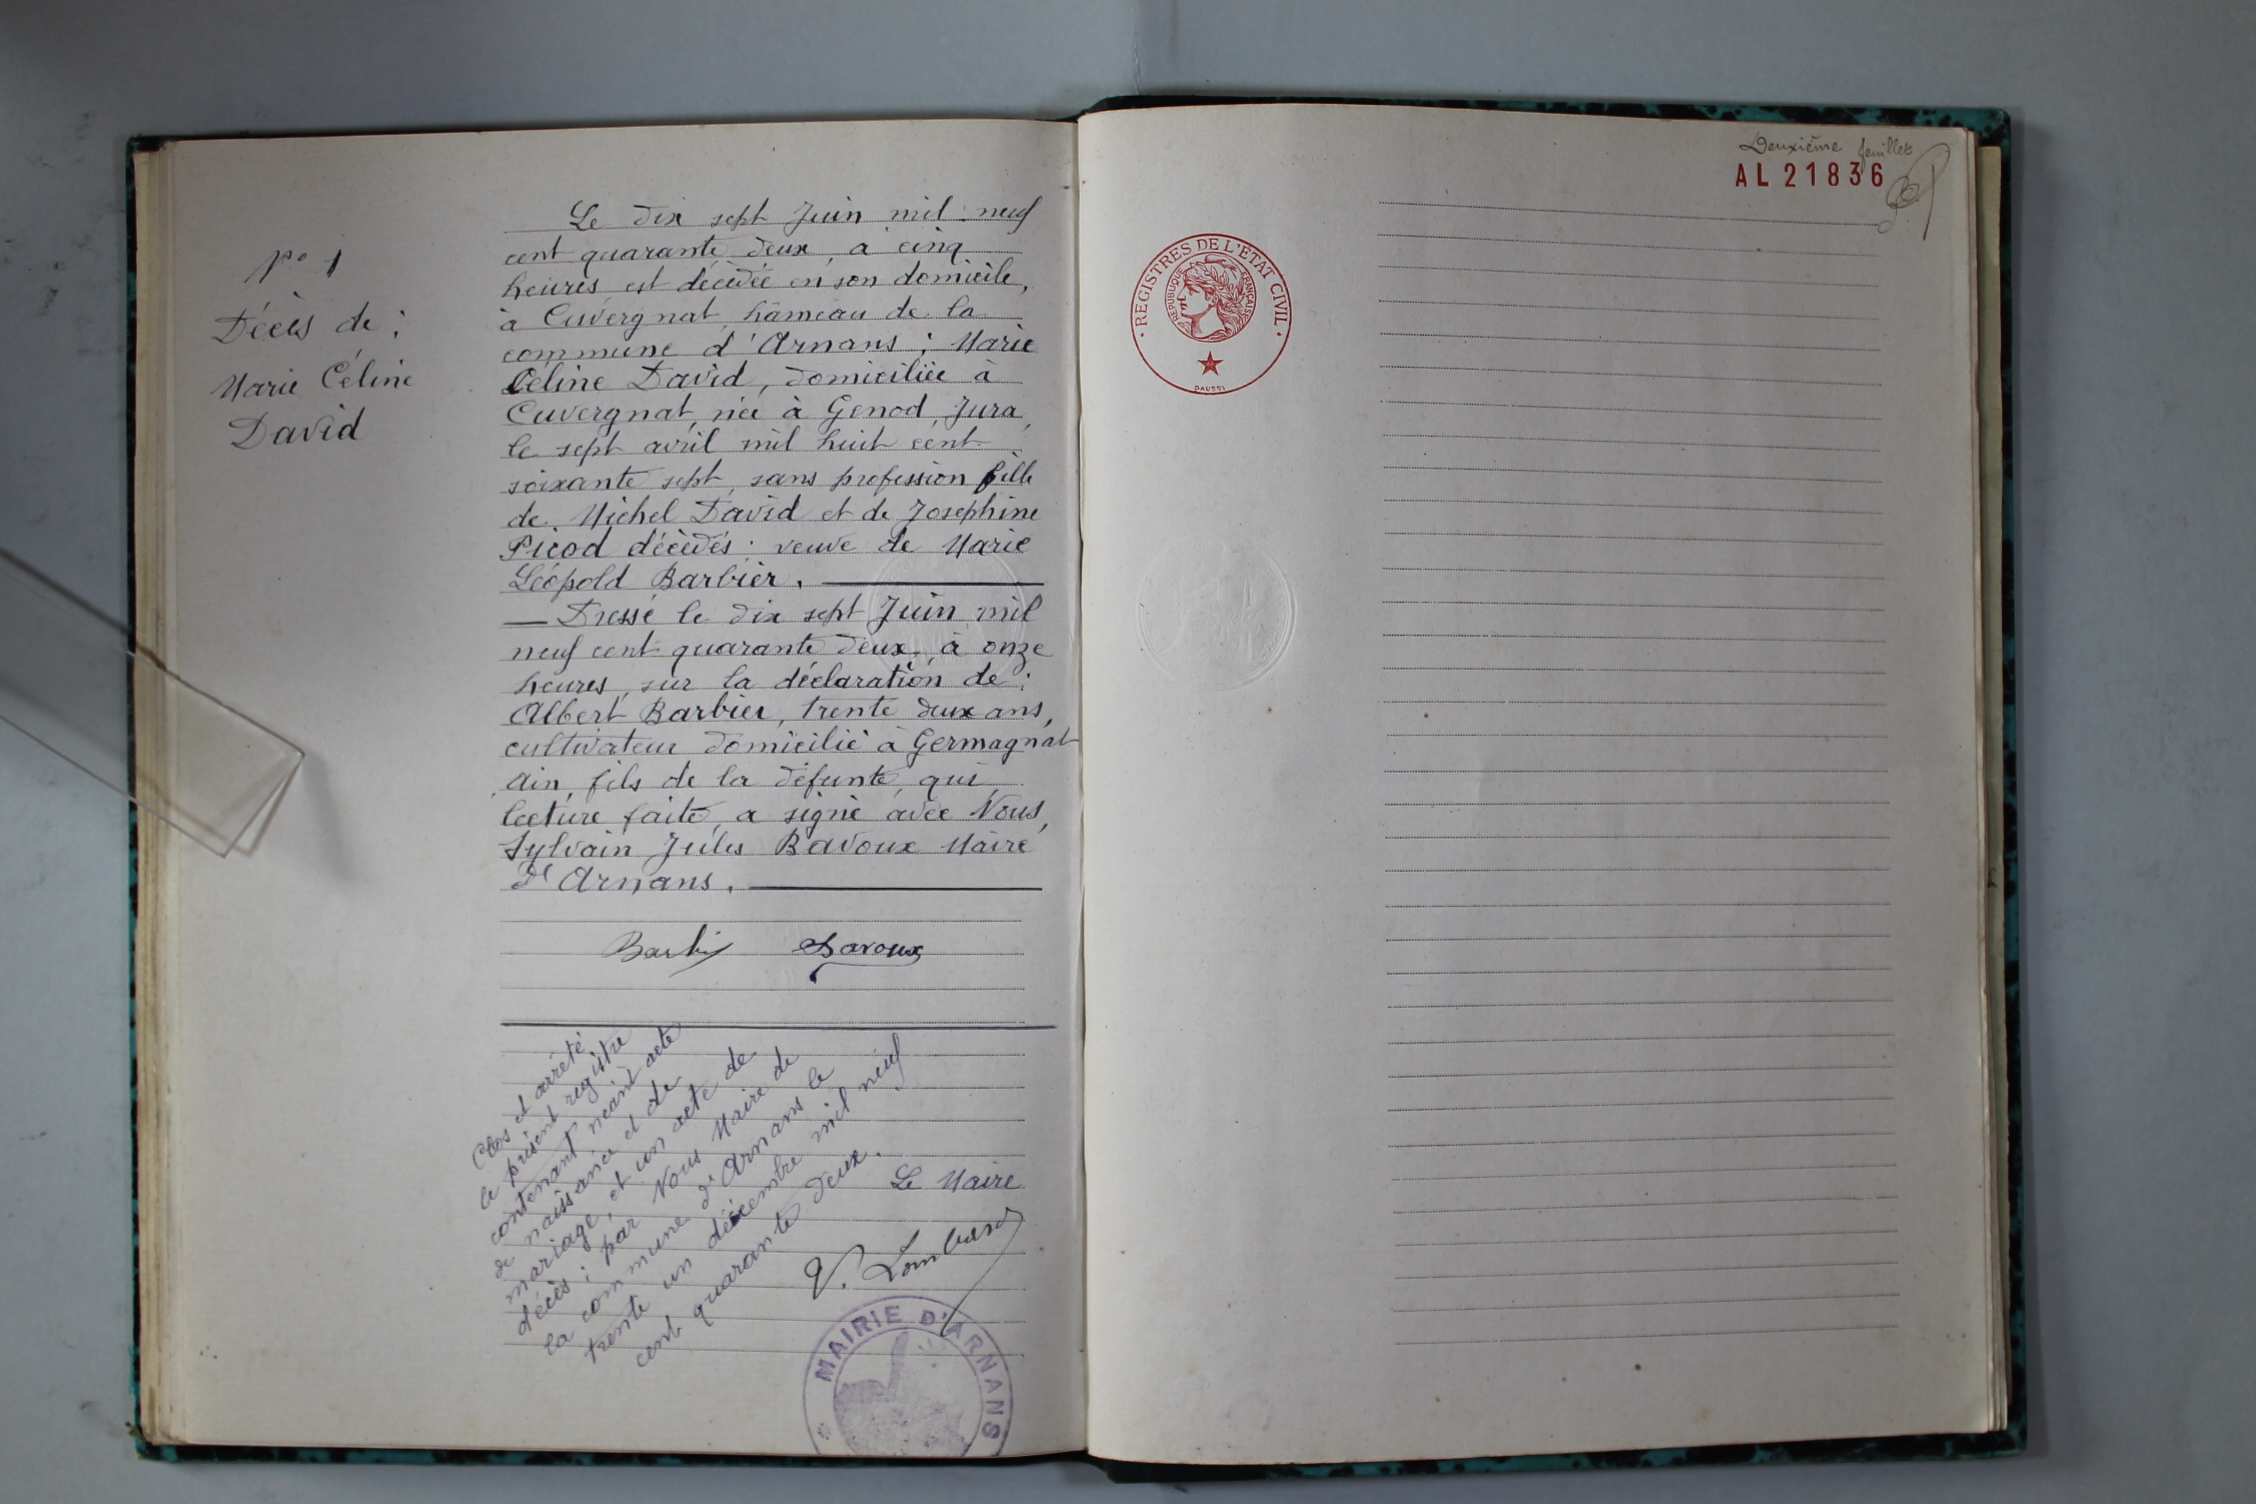 N° 1
Décès de :
Marie Céline
David
Le dix sept Juin mil neuf
cent quarante deux, à cinq
heures est décédée en son domicile,
à Cuvergnat, hameau de la
commune d'Arnans ; Marie
Céline David, domiciliée à
Cuvergnat, née à Genod, Jura,
le sept avril mil huit cent
soixante sept, sans profession fille
de Michel David et de Josephine
Picod décédés ; veuve de Marie
Léopold Barbier.
— Dressé le dix sept Juin mil
neuf cent quarante deux, à onze
heures, sur la déclaration de :
Albert Barbier, trente deux ans,
cultivateur domicilié à Germagnat
Ain, fils de la défunte, qui,
lecture faite, a signé avec Nous,
Sylvain Jules Bavoux Maire
d'Arnans.
Barbier Bavoux
Clos et arrêté
le présent registre
contenant néant acte
de naissance et de
mariage, et un acte de
décès ; par Nous Maire de
la commune d'Arnans le
trente un décembre mil neuf
cent quarante deux.
Le Maire
V. Lombard
MAIRIE D'ARNANS
Deuxième feuillet
AL 21836
REGISTRES DE L'ÉTAT CIVIL
RÉPUBLIQUE FRANÇAISE
DAUSSI